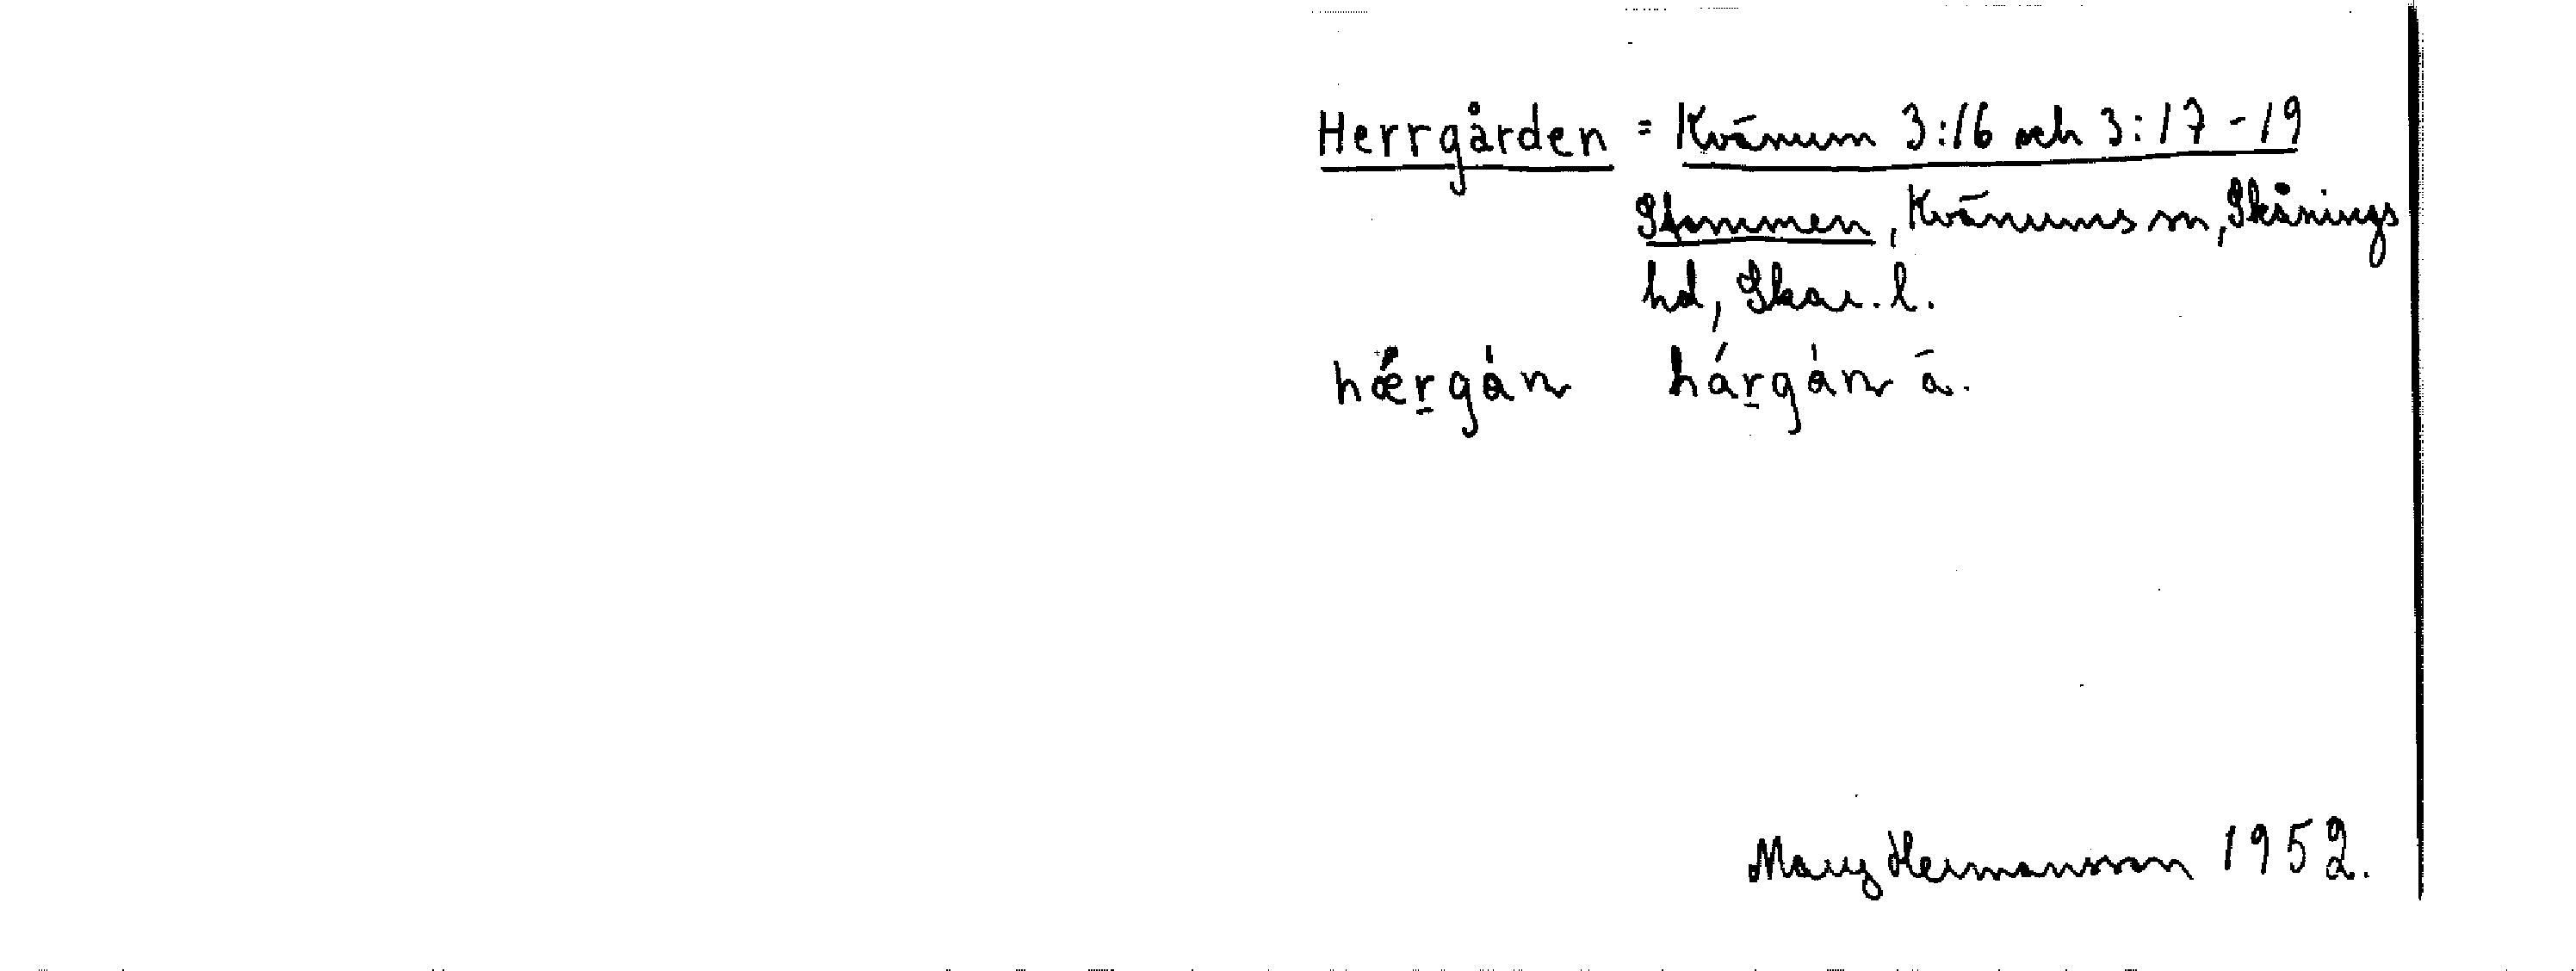 Herrgården = Kvänum 3:16 och 3:17-19
Stommen, Kvänums sn, Skånings
hd, Skar. l.
hǽr̲gȧ́n hár̲gȧ́n ā.
Mary Hermansson 1952.